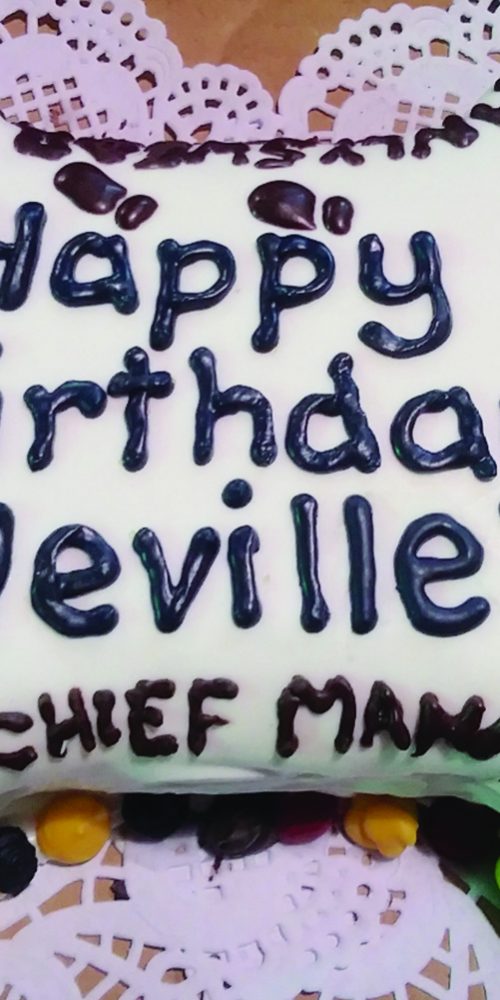 Happy
irthda
eville
CHIEF MAN